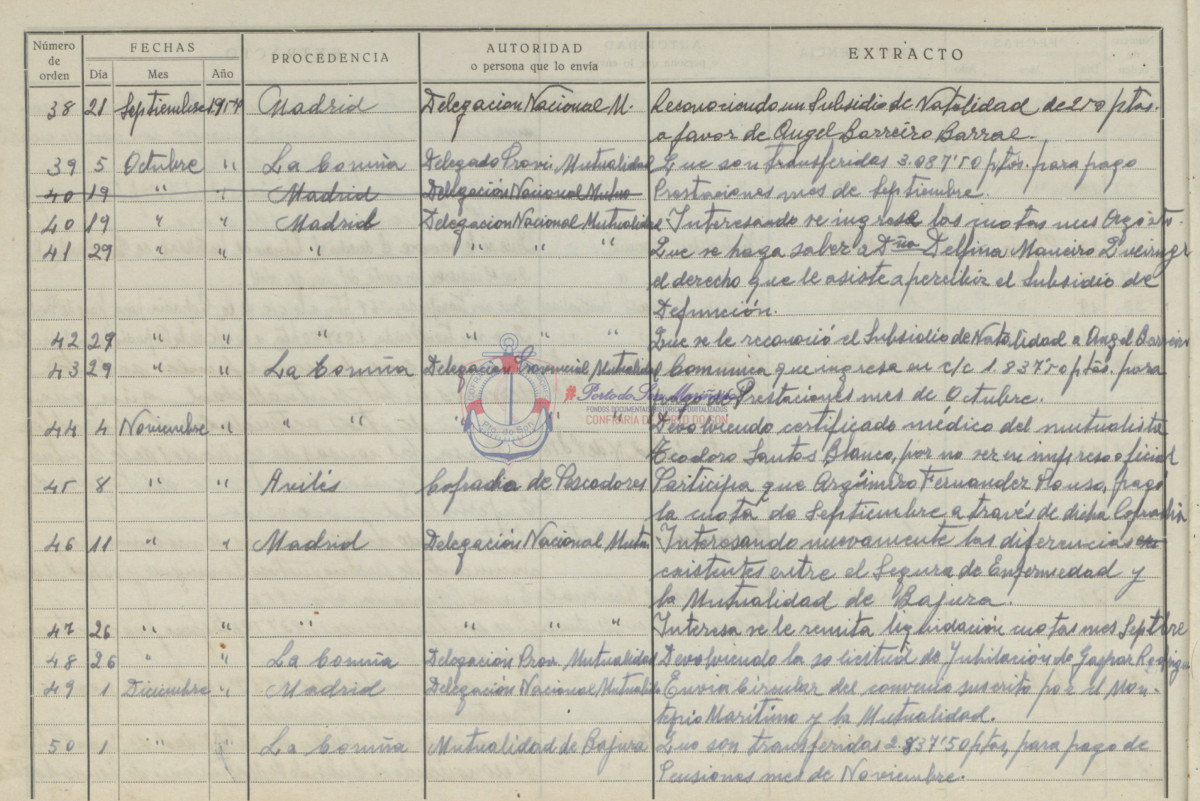 Número de orden FECHAS Día Mes Año PROCEDENCIA AUTORIDAD o persona que lo envía EXTRACTO
38 21 Septiembre 1954 Madrid Delegación Nacional M. Reconociendo un Subsidio de Natalidad de 250 ptas.
a favor de Angel Barreiro Barral.
39 5 Octubre " La Coruña Delegado Provi. Mutualidad Que son transferidas 3.087'50 ptas. para pago
40 19 " " Madrid Delegación Nacional Mutua Prestaciones mes de Septiembre.
40 19 " " Madrid Delegación Nacional Mutualidad Interesando se ingrese las cuotas mes Agosto.
41 29 " " " " " " Que se haga saber a Dña Delfina Maneiro
el derecho que le asiste a percibir el Subsidio de
Defunción.
42 29 " " " " " " Que se le reconoció el Subsidio de Natalidad a Angel Barreiro
43 29 " " La Coruña Delegación Provincial Mutualidad Comunica que ingresa en c/c 1.837'50 ptas. para
pago de Prestaciones mes de Octubre.
44 4 Noviembre " " " " " " Devolviendo certificado médico del mutualista
Teodoro Santos Blanco, por no ser en impreso oficial
45 8 " " Avilés Cofradía de Pescadores Participa que Argimiro Fernandez pagó
la cuota de Septiembre a través de dicha Cofradía
46 11 " " Madrid Delegación Nacional Mutua. Interesando nuevamente las diferencias
existentes entre el Seguro de Enfermedad y
la Mutualidad de Bajura.
47 26 " " " " " " Interesa se le remita liquidación cuotas mes Septbre
48 26 " " La Coruña Delegación Prov. Mutualidad Devolviendo la solicitud de Jubilación de Gaspar
49 1 Diciembre " Madrid Delegación Nacional Mutualidad Envia Circular del convenio suscrito por el Mon-
tepio Marítimo y la Mutualidad.
50 1 " " La Coruña Mutualidad de Bajura Que son transferidas 2.837'50 ptas, para pago de
Pensiones mes de Noviembre.
#Porto do Son Mariñeiro
FONDOS DOCUMENTAIS HISTÓRICOS DIXITALIZADOS
CONFRARÍA DE PORTO DO SON